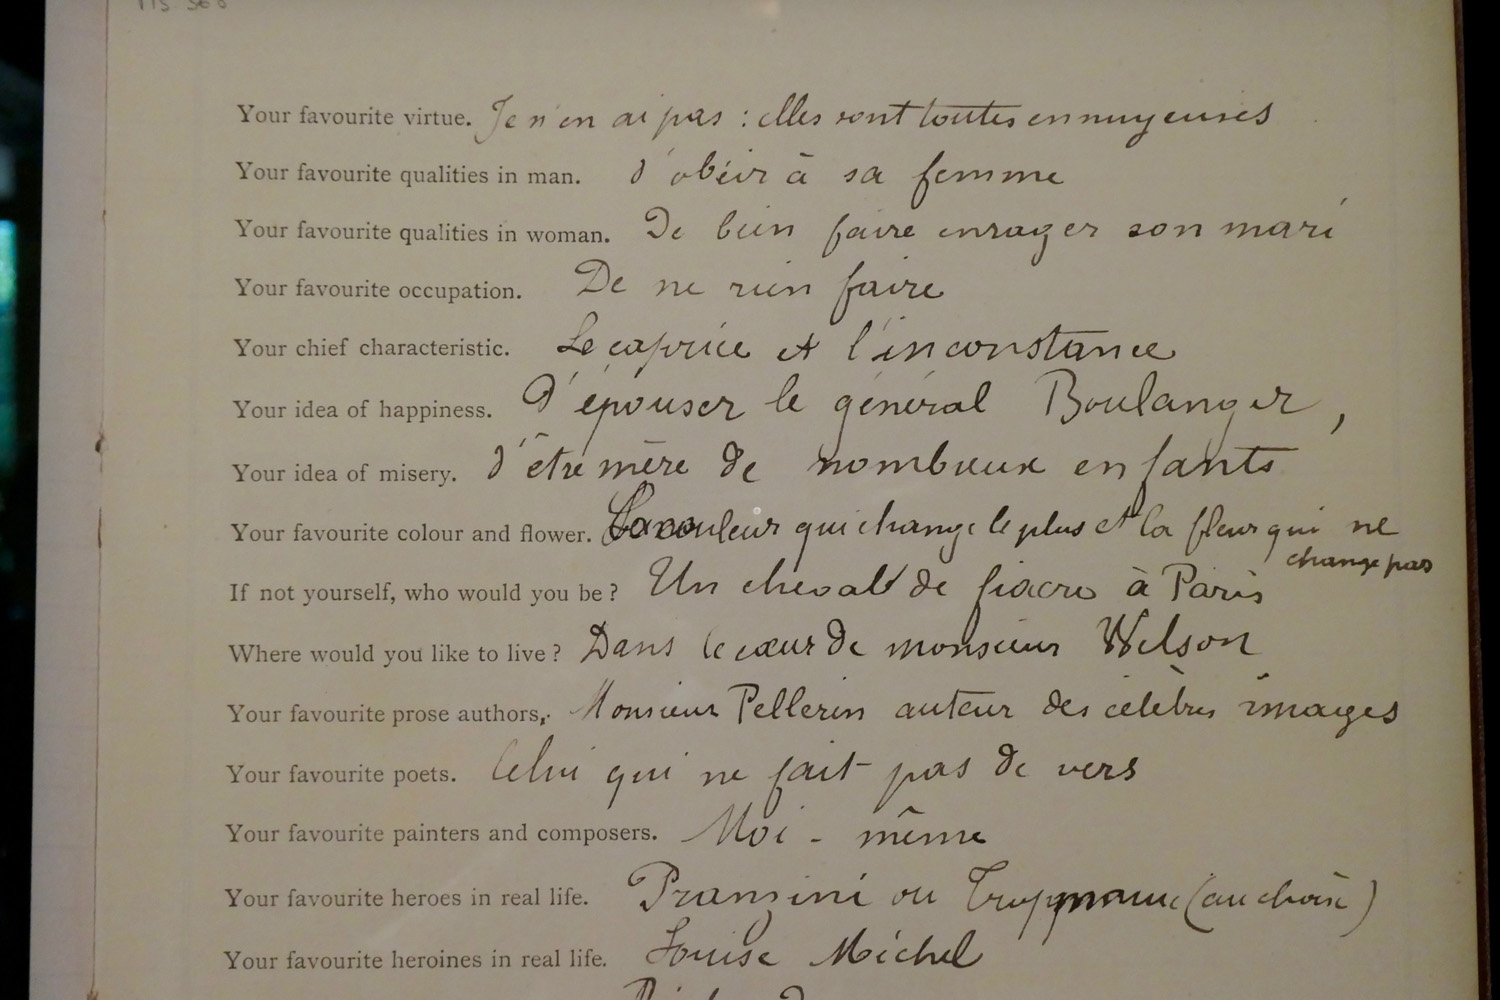 MS. 368
Your favourite virtue. Je n'en ai pas : elles sont toutes ennuyeuses
Your favourite qualities in man. d'obéir à sa femme
Your favourite qualities in woman. De bien faire enrager son mari
Your favourite occupation. De ne rien faire
Your chief characteristic. Le caprice et l'inconstance
Your idea of happiness. D'épouser le général Boulanger,
Your idea of misery. d'être mère de nombreux enfants
Your favourite colour and flower. La couleur qui change le plus et la fleur qui ne
change pas
If not yourself, who would you be? Un cheval de fiacre à Paris
Where would you like to live? Dans le cœur de monsieur Wilson
Your favourite prose authors. Monsieur Pellerin auteur des célèbres images
Your favourite poets. Celui qui ne fait pas de vers
Your favourite painters and composers. Moi-même
Your favourite heroes in real life. Pranzini ou Troppmann (au choix)
Your favourite heroines in real life. Louise Michel